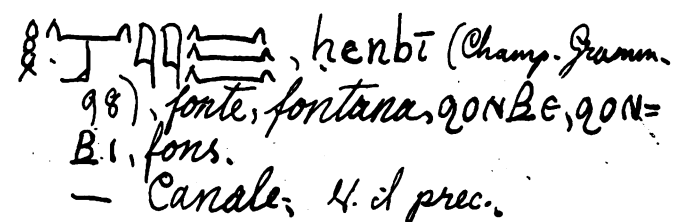 𓎛𓈖𓃀𓇋𓇋𓈗, ḥenbī (Champ. Gramm.
98), fonte, fontana, ϩⲟⲛⲃⲉ, ϩⲟⲛ=
ⲃⲓ, fons.
— Canale; V. il prec.